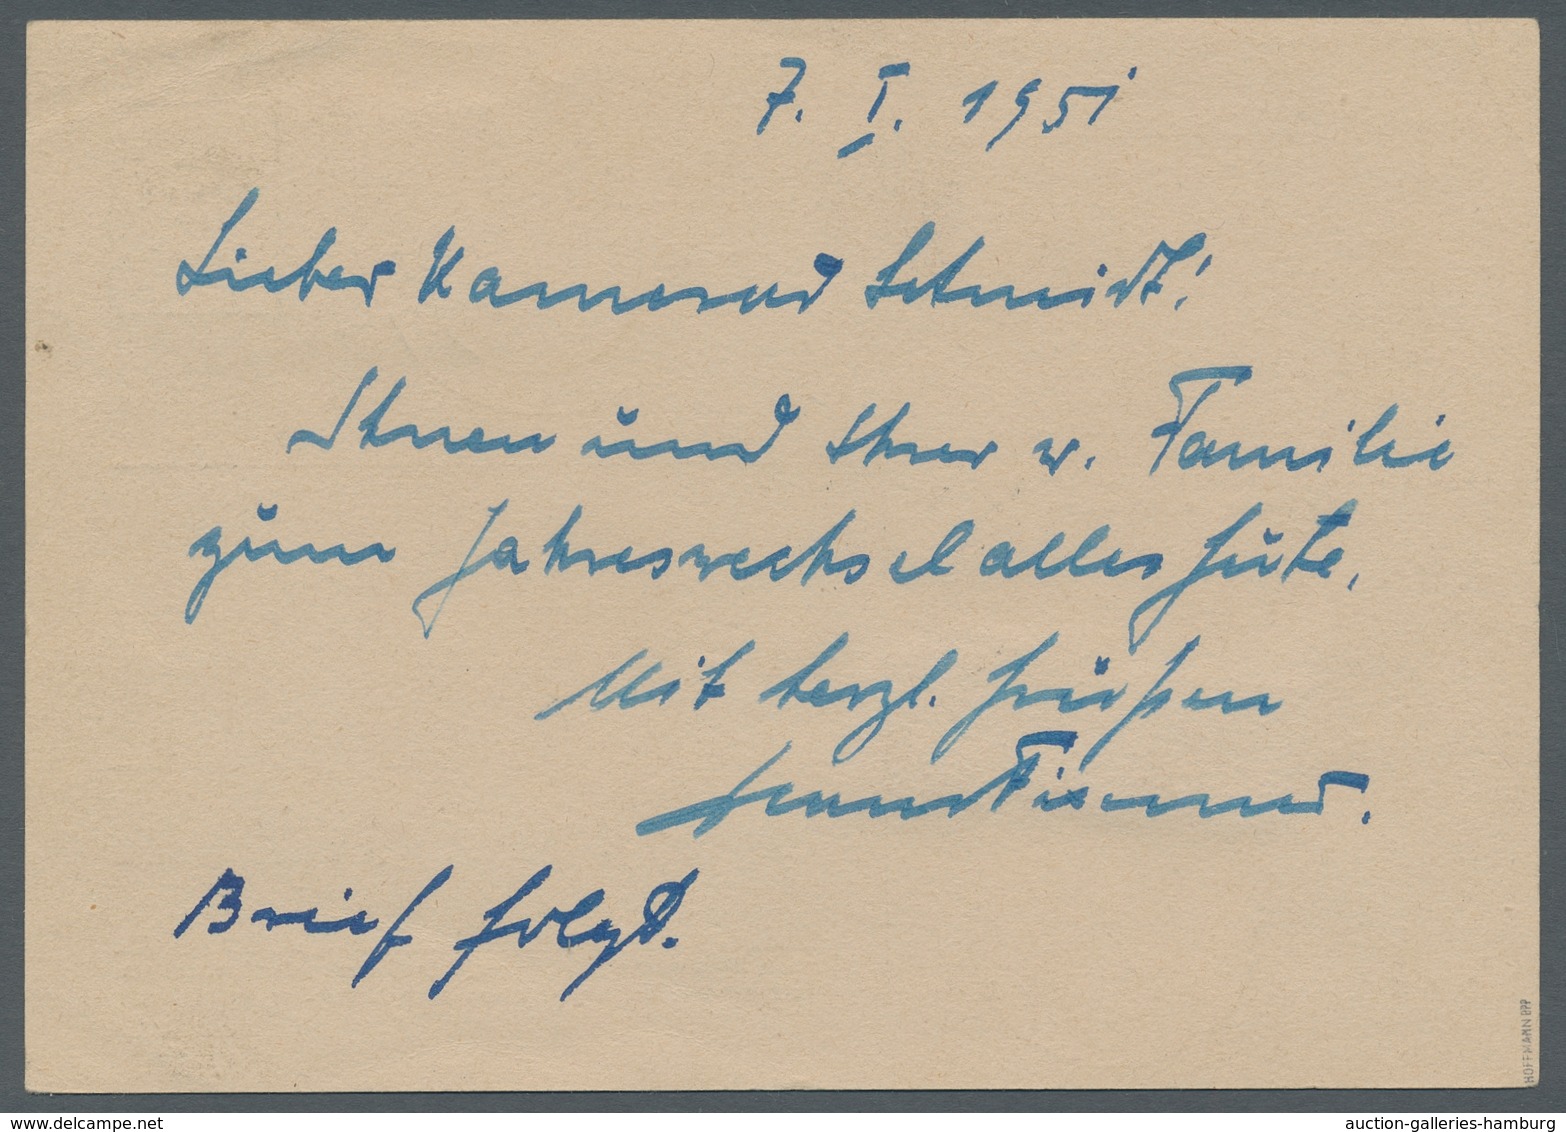 7. I. 1951
Lieber Kamerad Schmidt!
Ihnen und Ihrer w. Familie
zum Jahreswechsel alles Gute.
Mit herzl. Grüßen
Brief folgt.
HOFFMANN BPP
www.delcampe.net
auction-galleries-hamburg